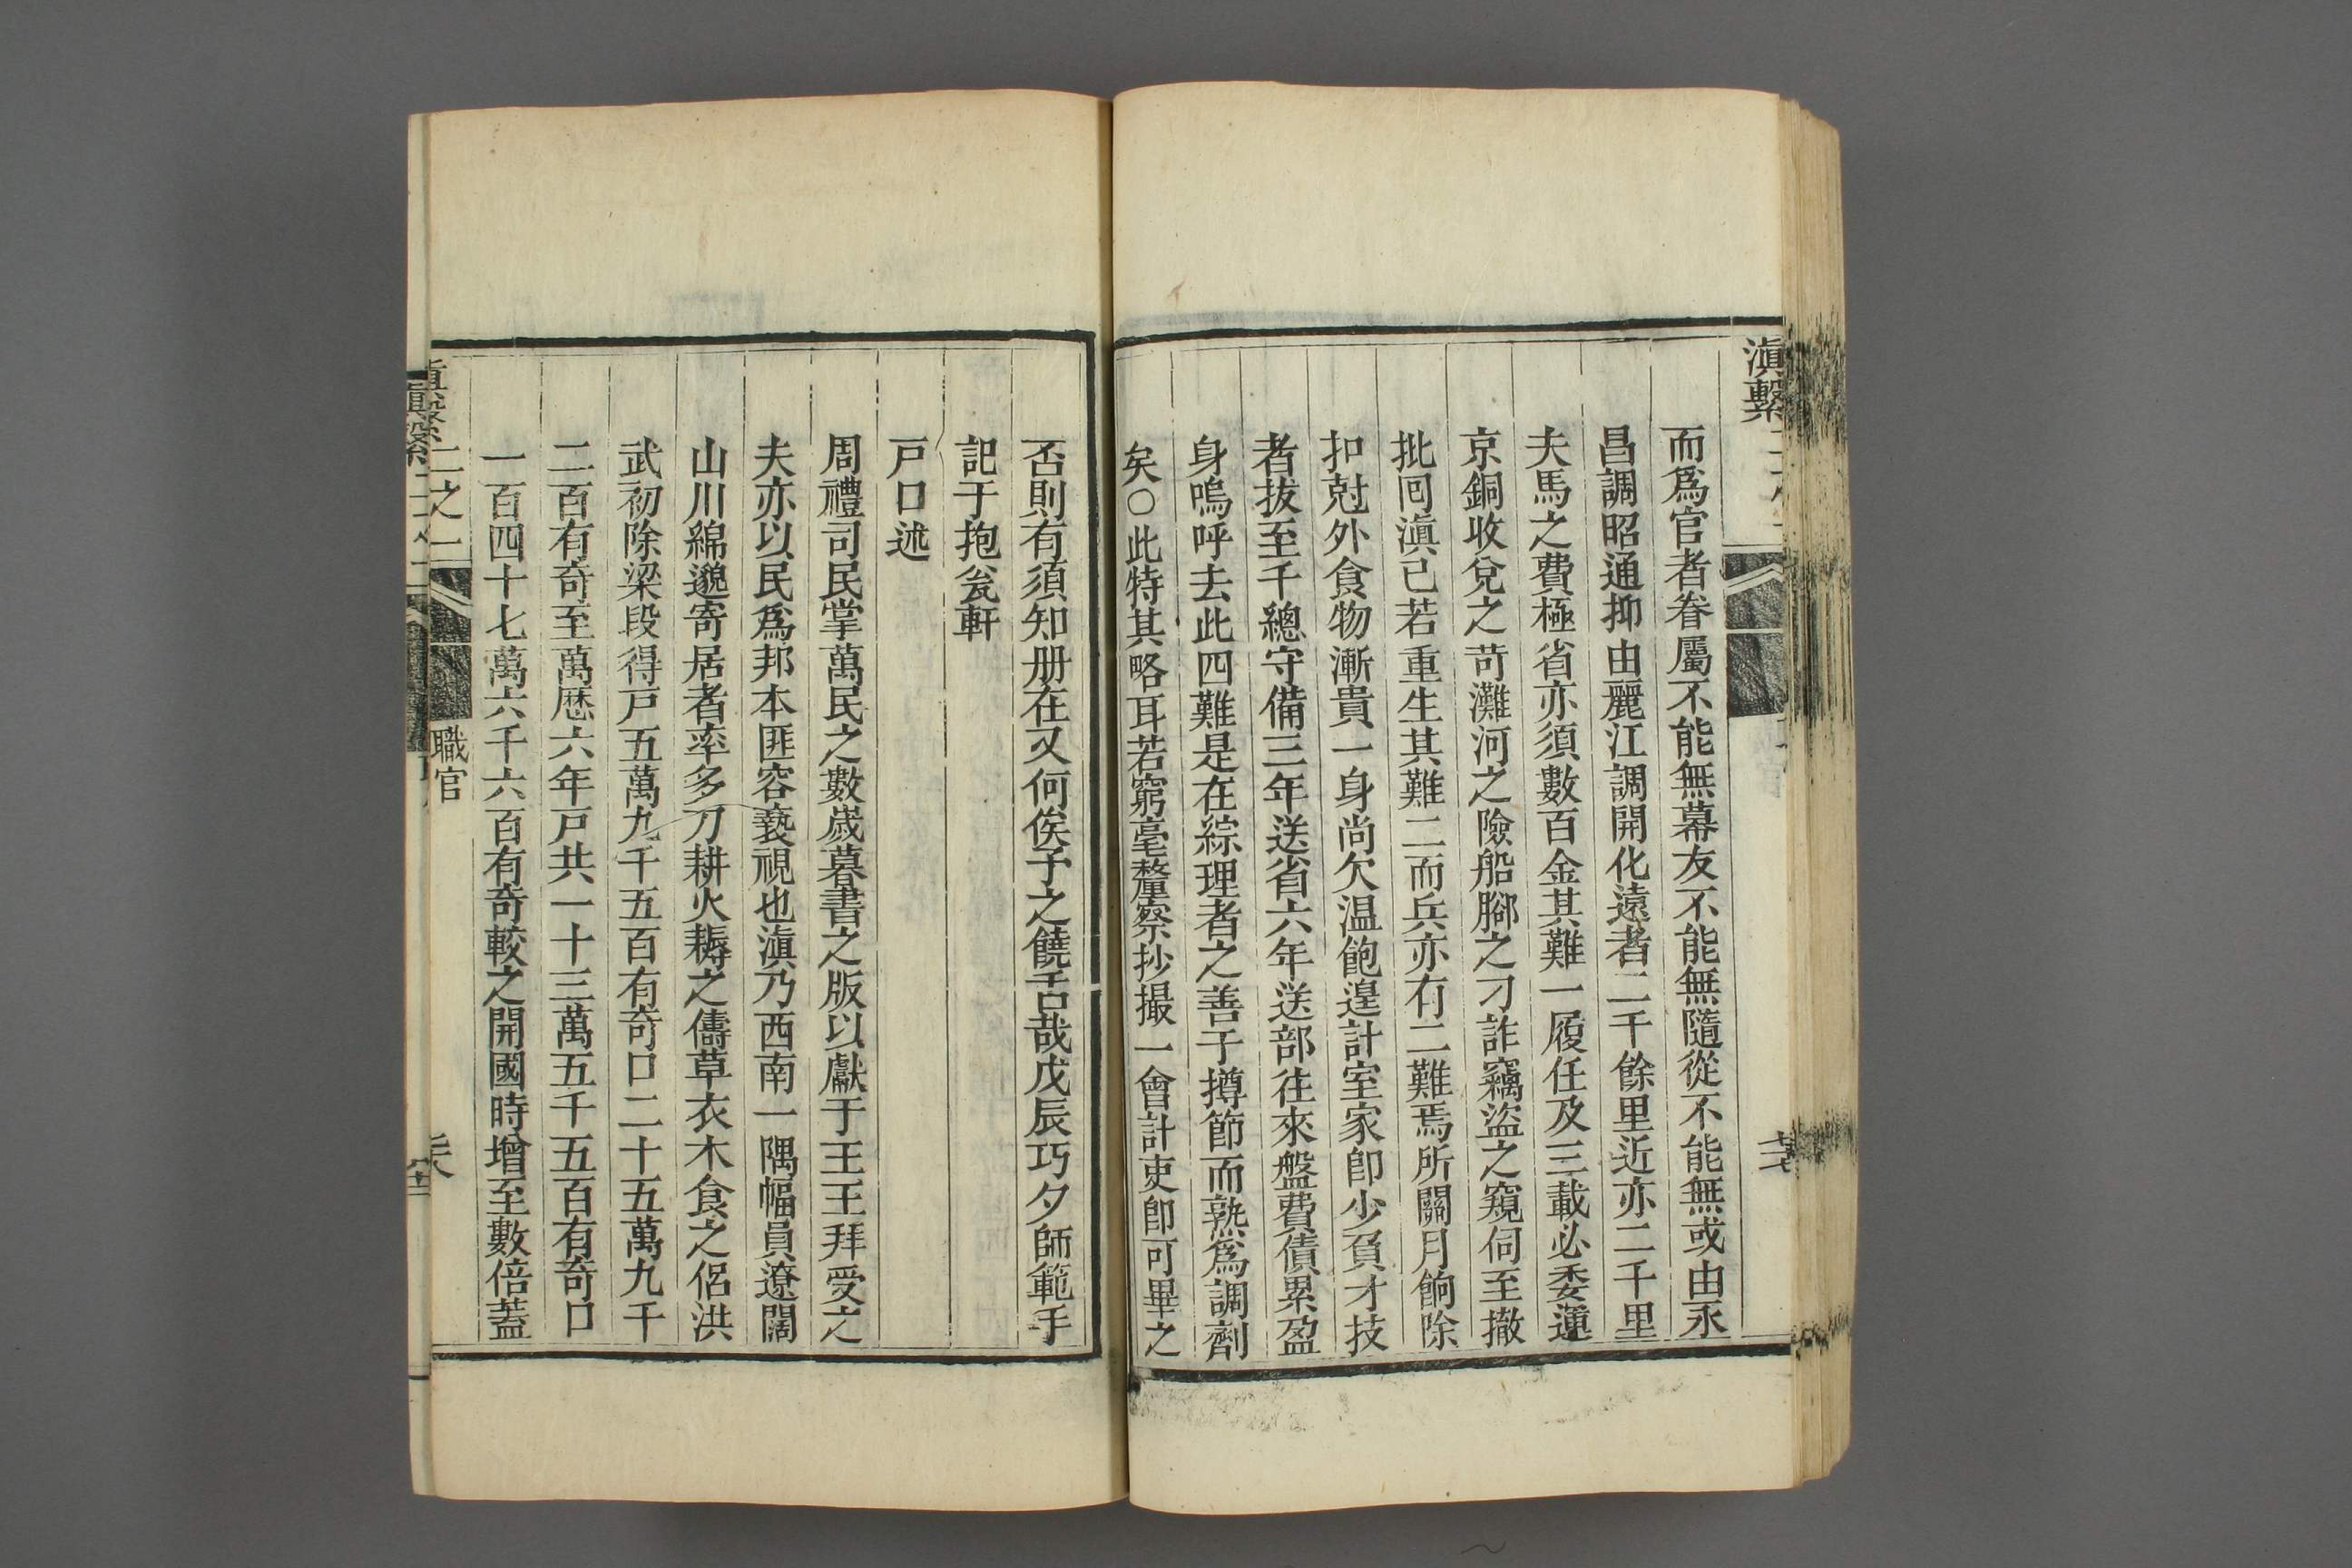 滇繫
而爲官者眷屬不能無幕友不能無隨從不能無或由永
昌調昭通抑由麗江調開化遠者二千餘里近亦二千里
夫馬之費極省亦須數百金其難一履任及三載必委運
京銅收兌之苛灘河之險船腳之刁詐竊盜之窺伺至撤
批囘滇已若重生其難二而兵亦有二難焉所關月餉除
扣尅外食物漸貴一身尚欠温飽遑計室家卽少負才技
者拔至千總守備三年送省六年送部往來盤費債累盈
身嗚呼去此四難是在綜理者之善于撙節而熟爲調劑
矣○此特其略耳若窮毫釐察抄撮一會計吏卽可畢之
否則有須知册在又何俟予之饒舌哉戊辰巧夕師範手
記于抱瓮軒
戸口述
周禮司民掌萬民之數歲暮書之版以獻于王王拜受之
夫亦以民爲邦本匪容褻視也滇乃西南一隅幅員遼闊
山川綿邈寄居者率多刀耕火耨之儔草衣木食之侶洪
武初除梁段得戸五萬九千五百有奇口二十五萬九千
二百有奇至萬厯六年戸共一十三萬五千五百有奇口
一百四十七萬六千六百有奇較之開國時增至數倍蓋
滇繫 二之二 職官